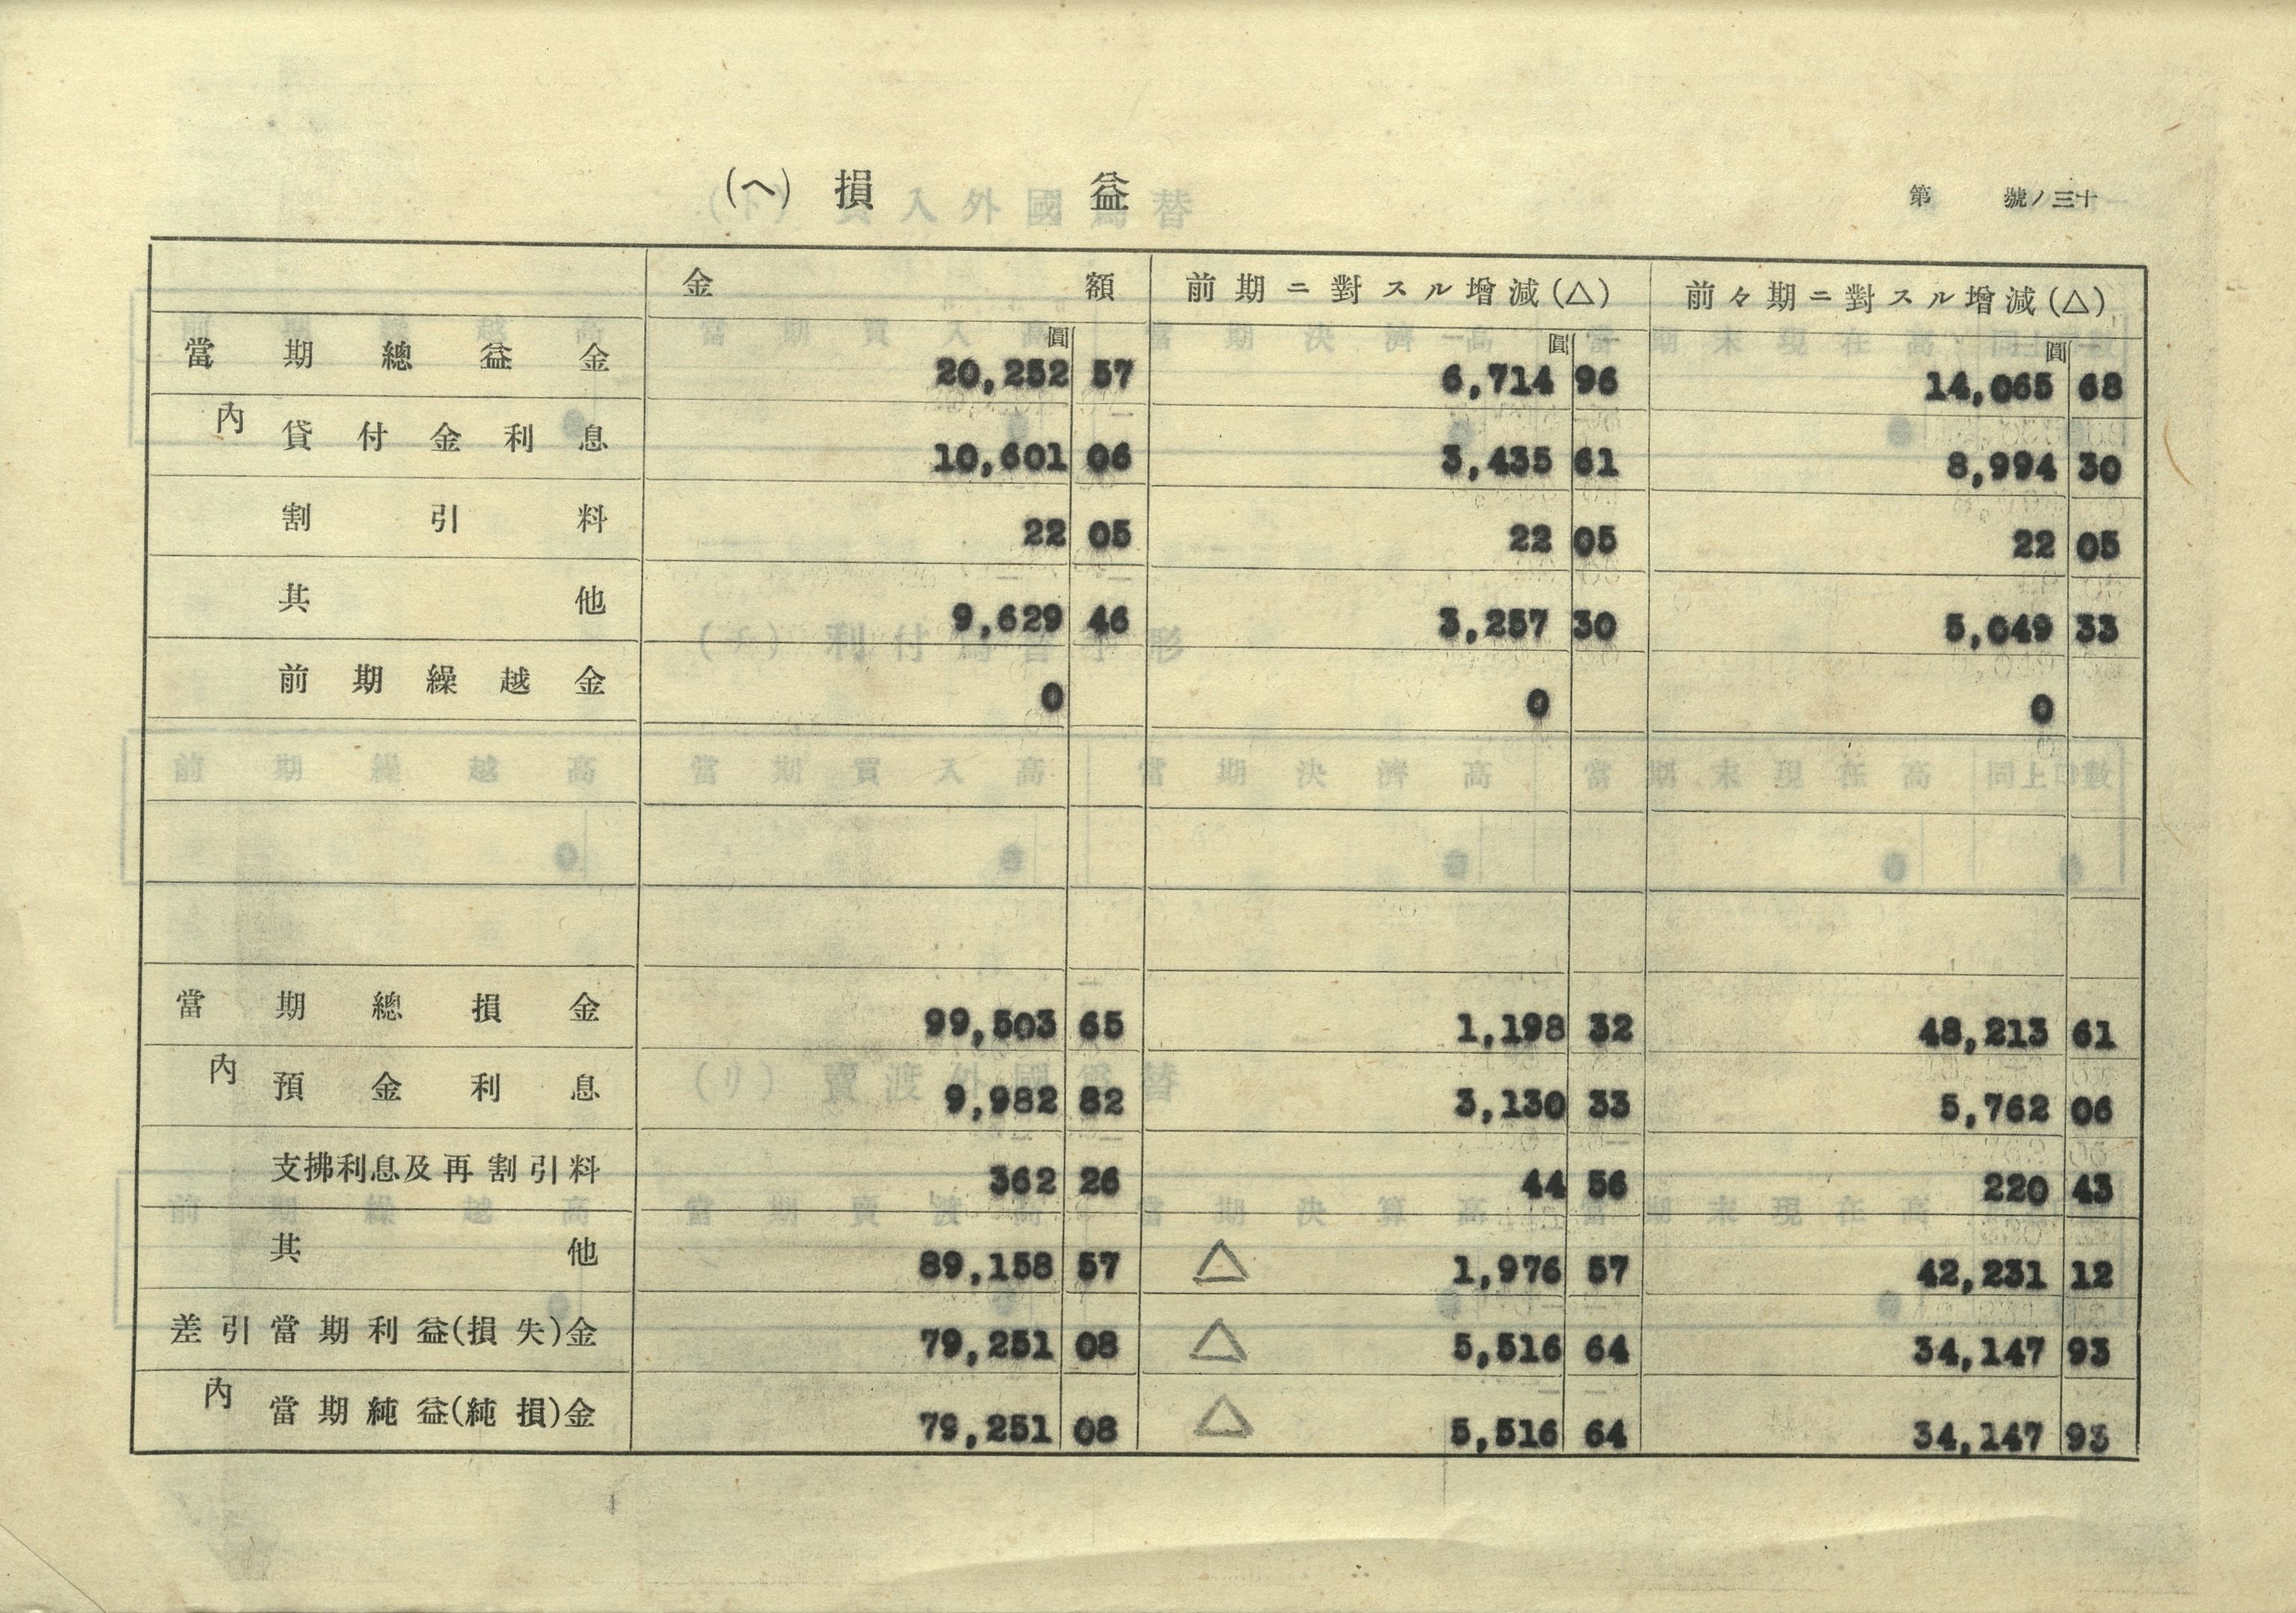 (ヘ) 損益
第 號ノ三十
金額 前期ニ對スル增減(△) 前々期ニ對スル增減(△)
圓 圓 圓
當期總益金 20,252 57 6,714 96 14,065 68
內 貸付金利息 10,601 06 3,435 61 8,994 30
割引料 22 05 22 05 22 05
其他 9,629 46 3,257 30 5,049 33
前期繰越金 0 0 0
當期總損金 99,503 65 1,198 32 48,213 61
內 預金利息 9,982 82 3,130 33 5,762 06
支拂利息及再割引料 362 26 44 56 220 43
其他 89,158 57 △ 1,976 57 42,231 12
差引當期利益(損失)金 79,251 08 △ 5,516 64 34,147 93
內 當期純益(純損)金 79,251 08 △ 5,516 64 34,147 93